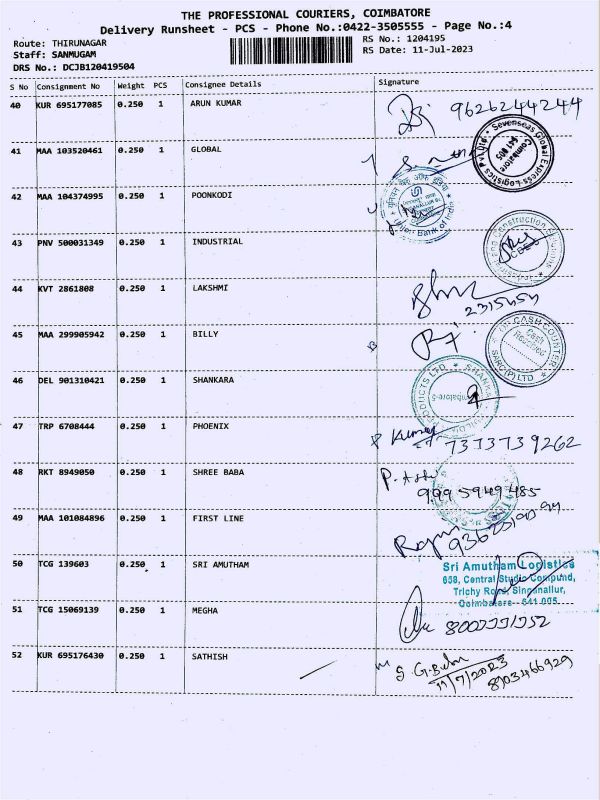 THE PROFESSIONAL COURIERS, COIMBATORE
Delivery Runsheet - PCS - Phone No.:0422-3505555 - Page No.:4
Route: THIRUNAGAR
Staff: SANMUGAM
DRS No.: DCJB120419504
RS No.: 1204195
RS Date: 11-Jul-2023
S No Consignment No Weight PCS Consignee Details Signature
40 KUR 695177085 0.250 1 ARUN KUMAR 9626244244
41 MAA 103520461 0.250 1 GLOBAL
Sevenseas Global Express Logistics Pvt Ltd
Coimbatore
641 005
42 MAA 104374995 0.250 1 POONKODI
43 PNV 500031349 0.250 1 INDUSTRIAL
44 KVT 2861808 0.250 1 LAKSHMI
45 MAA 299905942 0.250 1 BILLY
CASH COUNTER
Cash Received
46 DEL 901310421 0.250 1 SHANKARA
PRODUCTS LTD
47 TRP 6708444 0.250 1 PHOENIX Kumar
7373739262
48 RKT 8949050 0.250 1 SHREE BABA
9995949485
49 MAA 101084896 0.250 1 FIRST LINE
50 TCG 139603 0.250 1 SRI AMUTHAM
Sri Amutham Logistics
658, Central Studio Compund,
Trichy Road, Singanallur,
Coimbatore - 641 005.
51 TCG 15069139 0.250 1 MEGHA
52 KUR 695176430 0.250 1 SATHISH
11/7/2023
8903466929